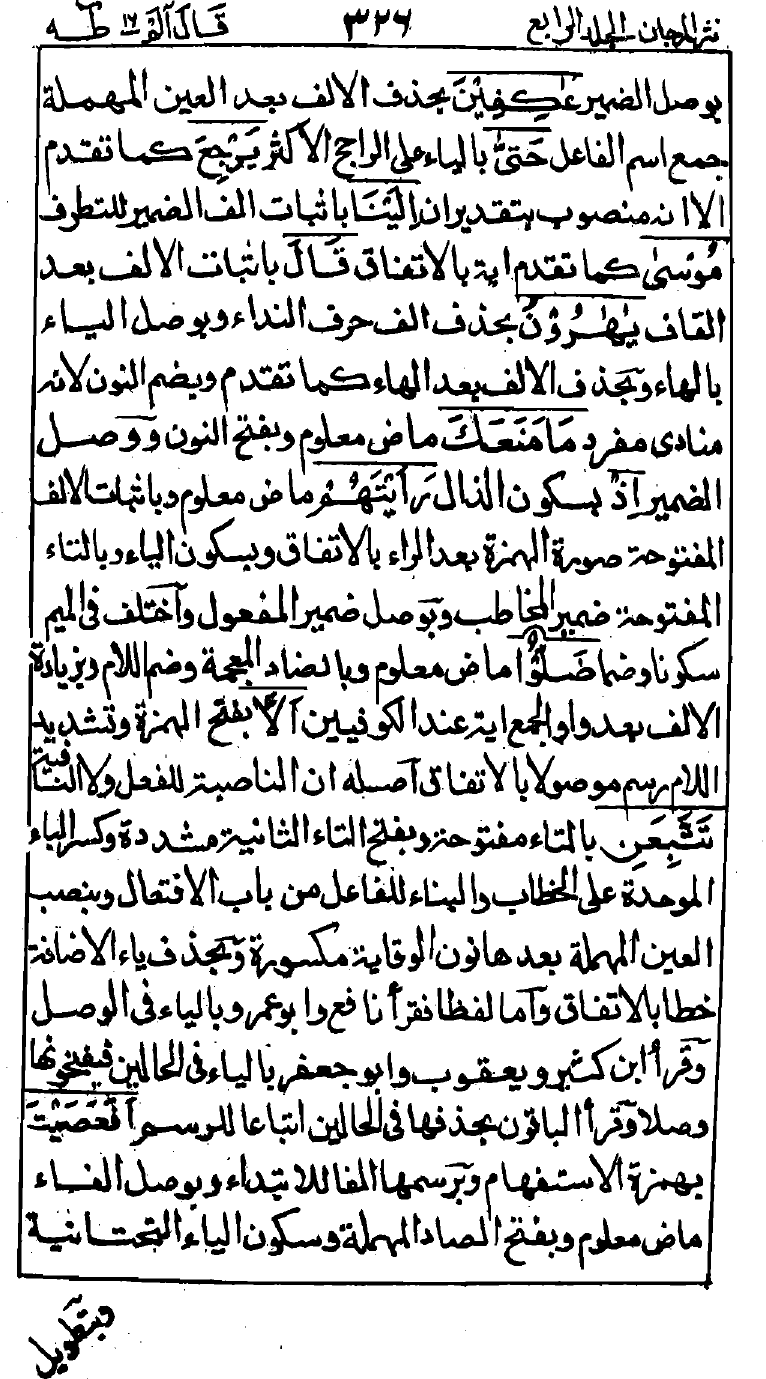 نثر المرجان الجلد الرابع ٣٢٦ قال الم ١٦ طه
بوصل الضمير عٰكِفِيْنَ بحذف الالف بعد العين المهملة
جمع اسم الفاعل حَتّٰى بالياء على الراجح الاكثر يَرْجِعَ كما تقدم
الا انه منصوب بتقدير ان اِلَيْنَا باثبات الف الضمير للتطرف
مُوْسٰى كما تقدم اية بالاتفاق قَالَ باثبات الالف بعد
القاف يٰهٰرُوْنُ بحذف الف حرف النداء وبوصل الياء
بالهاء وبحذف الالف بعد الهاء كما تقدم وبضم النون لانه
منادى مفرد مَا مَنَعَكَ ماض معلوم وبفتح النون ووصل
الضمير اِذْ بسكون الذال رَاَيْتَهُمْ ماض معلوم وباثبات الالف
المفتوحة صورة الهمزة بعد الراء بالاتفاق وبسكون الياء وبالتاء
المفتوحة ضمير المخاطب وبوصل ضمير المفعول واختلف فى الميم
سكونا وضما ضَلُّوْا ماض معلوم وبالضاد المعجمة وضم اللام وبزيادة
الالف بعد واو الجمع اية عند الكوفيين اَلَّا بفتح الهمزة وتشديد
اللام رسم موصولا بالاتفاق اصله ان الناصبة للفعل ولا النافية
تَتَّبِعَنِ بالتاء مفتوحة وبفتح التاء الثانية مشددة وكسر الباء
الموحدة على الخطاب والبناء للفاعل من باب الافتعال وبنصب
العين المهملة بعدها نون الوقاية مكسورة وبحذف ياء الاضافة
خطا بالاتفاق واما لفظا فقرأ نافع وابو عمرو بالياء فى الوصل
وقرأ ابن كثير ويعقوب وابو جعفر بالياء فى الحالين فيفتحونها
وصلا وقرأ الباقون بحذفها فى الحالين اتباعا للرسم اَفَعَصَيْتَ
بهمزة الاستفهام وبرسمها الفا للابتداء وبوصل الفاء
ماض معلوم وبفتح الصاد المهملة وسكون الياء التحتانية
وبتطويل